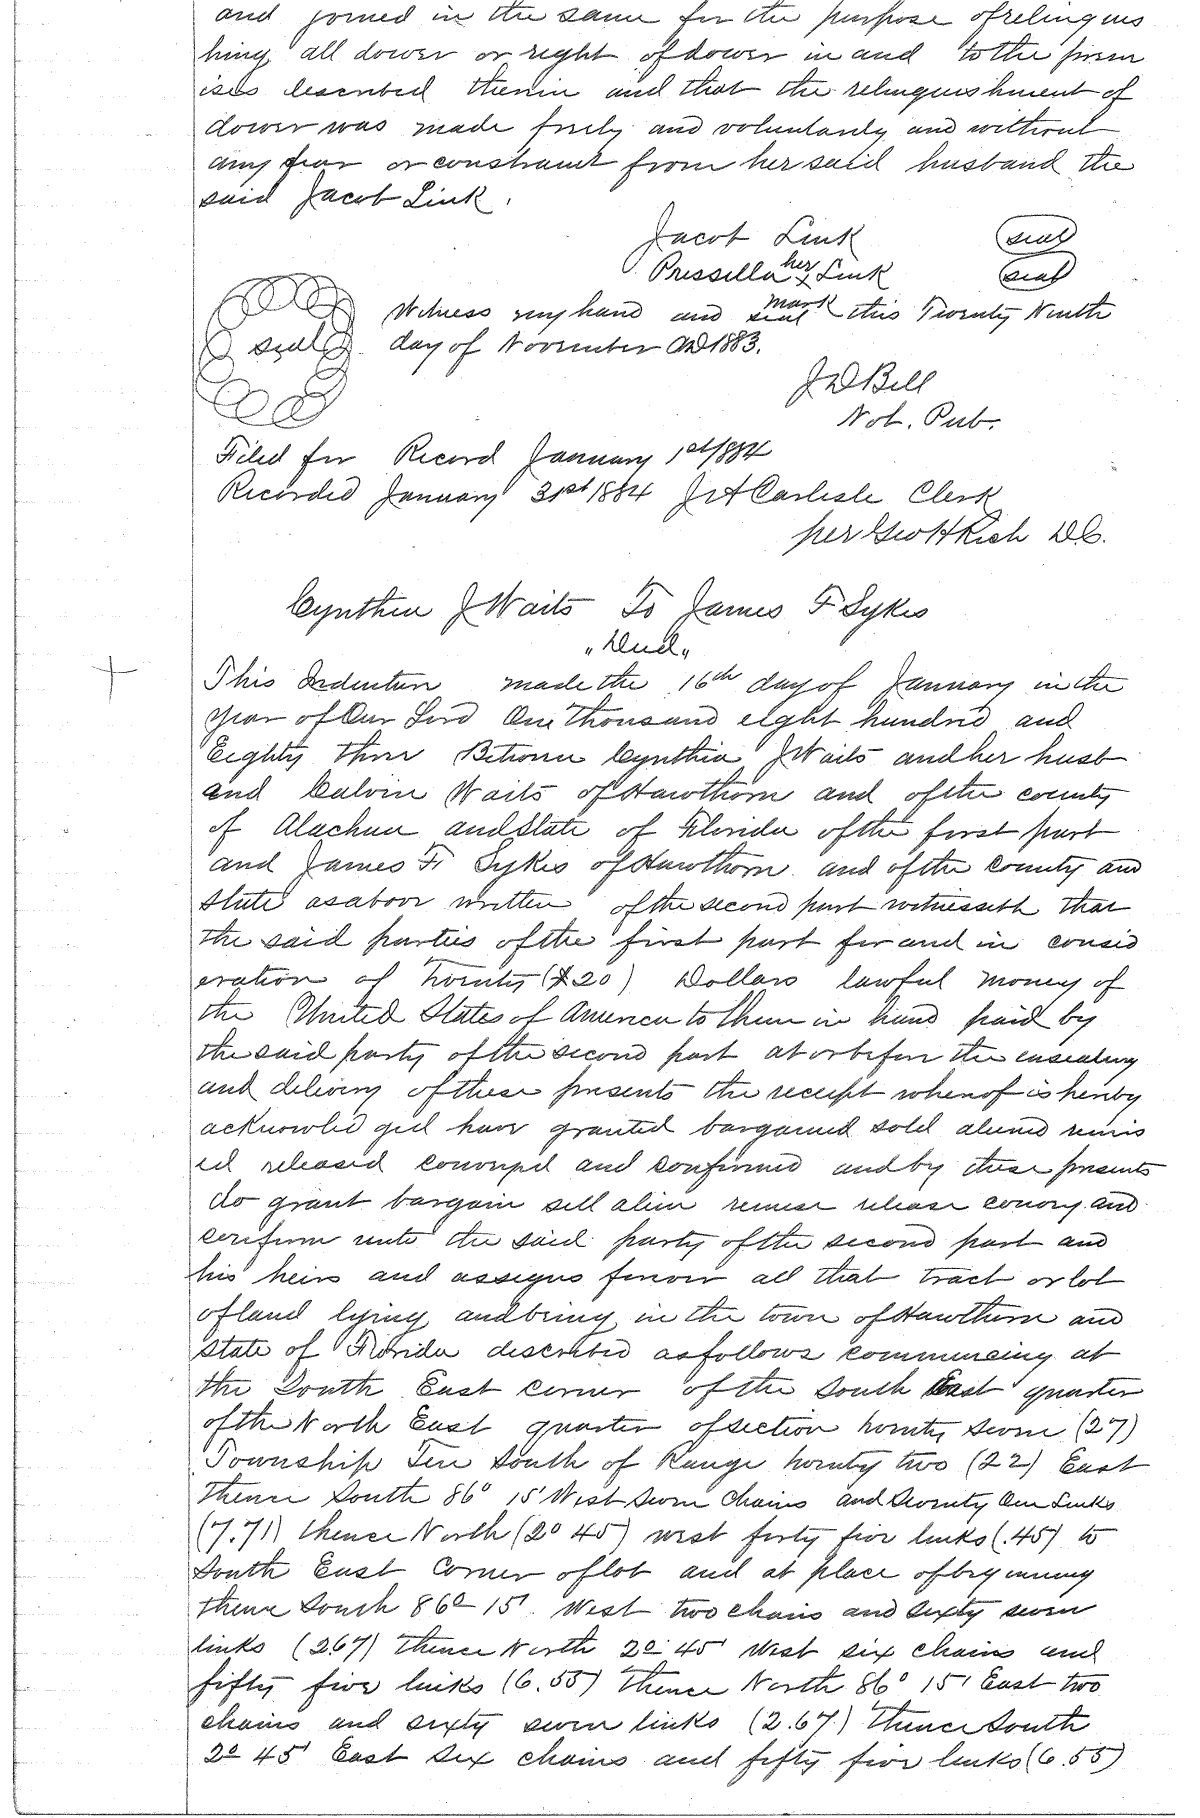 and joined in the same for the purpose of relinquis
hing all dower or right of dower in and to the prem
ises described therein and that the relinquishment of
dower was made freely and voluntarily and without
any fear or constraint from her said husband the
said Jacob Link.
Jacob Link seal
Prissilla her x Link seal
mark
Witness my hand and seal this Twenty Ninth
seal day of November AD 1883.
J D Bell
Not. Pub.
Filed for Record January 1st 1884
Recorded January 31st 1884 J A Carlisle Clerk
per Geo H Rich D.C.
Cynthia J Waits To James F Sykes
"Deed"
This Indenture made the 16th day of January in the
year of Our Lord One Thousand eight hundred and
Eighty three Between Cynthia J Waits and her husb
and Calvin Waits of Hawthorn and of the county
of Alachua and State of Florida of the first part
and James F. Sykes of Hawthorn and of the county and
State as above written of the second part witnesseth that
the said parties of the first part for and in consid
eration of twenty ($20) Dollars lawful money of
the United States of America to them in hand paid by
the said party of the second part at or before the ensealing
and delivery of these presents the receipt whereof is hereby
acknowled ged have granted bargained sold aliened remis
ed released conveyed and confirmed and by these presents
do grant bargain sell alien remise release convey and
confirm unto the said party of the second part and
his heirs and assigns forever all that tract or lot
of land lying and being in the town of Hawthorn and
State of Florida described as follows commencing at
the South East corner of the South East quarter
of the North East quarter of section twenty seven (27)
Township Ten South of Range twenty two (22) East
thence South 86° 15' West seven chains and seventy one Links
(7.71) thence North (2° 45) west forty five links (.45) to
South East Corner of lot and at place of beginning
thence South 86° 15' West two chains and sixty seven
links (267) thence North 2° 45' West six chains and
fifty five links (6.55) thence North 86° 15' East two
chains and sixty seven links (2.67) thence South
2° 45' East six chains and fifty five links (6.55)